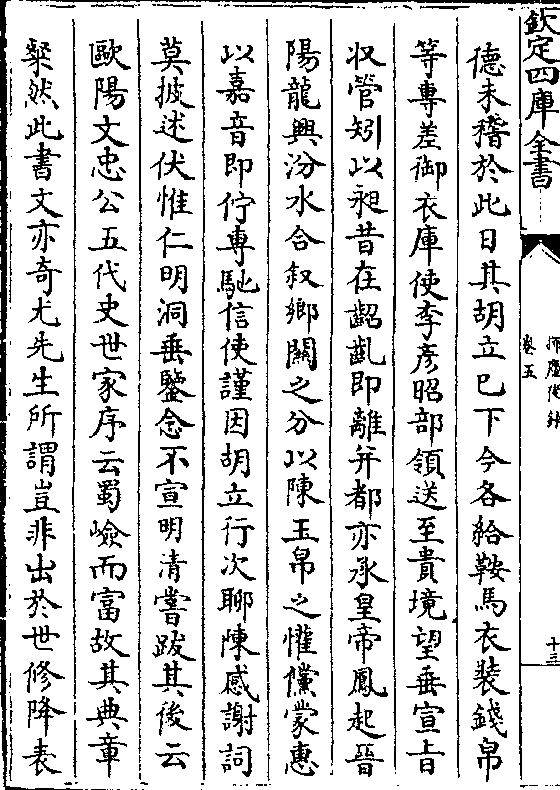 欽定四庫全書
卷五
十三
德未稽於此日其胡立已下今各給鞍馬衣装錢帛
等專差御衣庫使李彦昭部領送至貴境望垂宣㫖
収管矧以昶昔在齠齓即離并都亦承皇帝鳳起晉
陽龍興汾水合叙鄉闗之分以陳玉帛之懽儻蒙惠
以嘉音即佇專馳信使謹因胡立行次聊陳感謝詞
莫披述伏惟仁明洞垂鑒念不宣明清嘗䟦其後云
歐陽文忠公五代史世家序云蜀嶮而富故其典章
粲然此書文亦竒尤先生所謂豈非出於世修降表